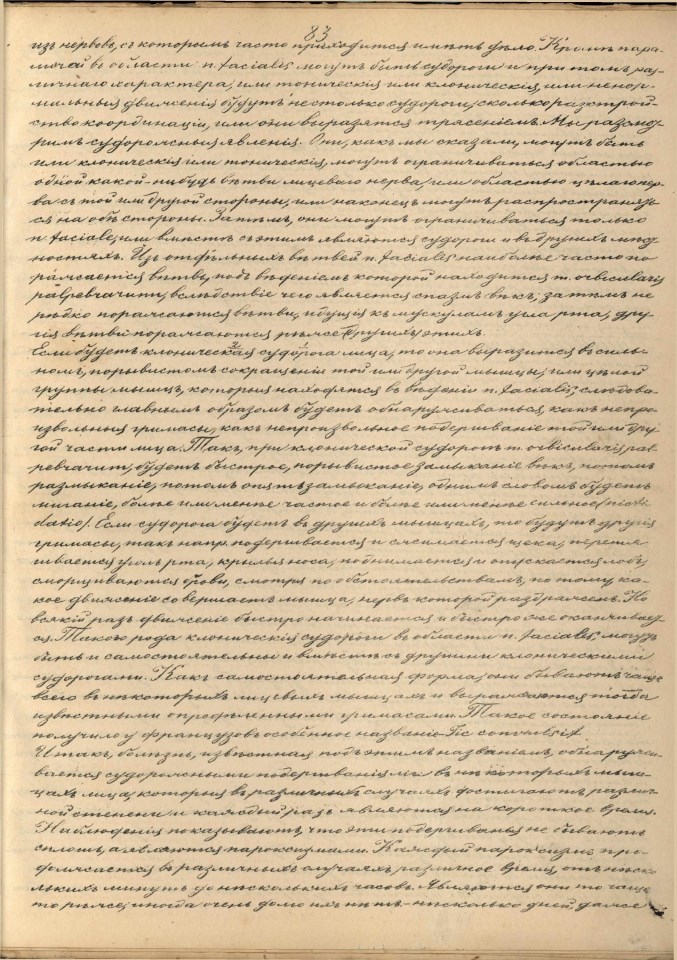 83
изъ нервовъ, съ которымъ часто приходится имѣть дѣло. Кромѣ пара-
личей въ области n. facialis могутъ быть судороги и при томъ раз-
личнаго характера, или тоническія или клоническія, или ненор-
мальныя движенія будутъ не столько судороги, сколько разстрой-
ство координаціи, или они выразятся трясеніемъ. Мы разсмо-
римъ судорожныя явленія. Они, какъ мы сказали, могутъ быть
или клоническія или тоническія, могутъ ограничиваться областью
одной какой-нибудь вѣтви лицеваго нерва, или областью цѣлаго нер-
ва съ той или другой стороны, или наконецъ могутъ распространять-
ся на обѣ стороны. Затѣмъ, они могутъ ограничиваться только
n. faciale, или вмѣстѣ съ этимъ являются судороги и въ другихъ мѣст-
ностяхъ. Изъ отдѣльныхъ вѣтвей n. facialis наиболѣе часто по-
ражается вѣтвь, подъ вѣденіемъ которой находится m. orbicularis
palpebrarum, вслѣдствіе чего является спазмъ вѣкъ, затѣмъ не
рѣдко поражаются вѣтви, идущія къ мускуламъ угла рта, дру-
гія вѣтви поражаются рѣже другихъ этихъ.
Если будетъ клоническая судорога лица, то она выразится въ силь-
номъ, порывистомъ сокращеніи той или другой мышцы, или цѣлой
группы мышцъ, которыя находятся въ вѣденіи n. facialis, слѣдова-
тельно главнымъ образомъ будетъ обнаруживаться, какъ непро-
извольныя гримасы, какъ непроизвольное подергиваніе той или дру-
гой части лица. Такъ, при клонической судорогѣ m. orbicularis pal-
pebrarum, будетъ быстрое, порывистое замыканіе вѣкъ, потомъ
размыканіе, потомъ опять замыканіе, однимъ словомъ будетъ
миганіе, болѣе или менѣе частое и болѣе или менѣе сильное (nicti-
tatio). Если судорога будетъ въ другихъ мышцахъ, то будутъ другія
гримасы, такъ напр. подергивается и сжимается щека, перетя-
гивается уголъ рта, крылья носа, поднимается и опускается лобъ,
сморщиваются брови, смотря по обстоятельствамъ, по тому ка-
кое движеніе совершаетъ мышца, нервъ которой раздраженъ. Но
всякій разъ движеніе быстро начинается и быстро же оканчивает-
ся. Такого рода клоническія судороги въ области n. facialis, могутъ
быть и самостоятельны и вмѣстѣ съ другими клоническими
судорогами. Какъ самостоятельная форма, они бываютъ чаще
всего въ нѣкоторыхъ лицевыхъ мышцахъ и выражаются тогда
извѣстными опредѣленными гримасами. Такое состояніе
получило у французовъ особенное названіе Tic convulsif.
И такъ, болѣзнь, извѣстная подъ этимъ названіемъ, обнаружи-
вается судорожными подергиваніями въ нѣкоторыхъ мыш-
цахъ лица, которыя въ различныхъ случаяхъ достигаютъ различ-
ной степени и каждый разъ являются на короткое время.
Наблюденія показываютъ, что эти подергиванья не бываютъ
сплошь, а являются пароксизмами. Каждый пароксизмъ про-
должается въ различныхъ случаяхъ различное время, отъ нѣско-
лькихъ минутъ до нѣсколькихъ часовъ. Являются они то чаще,
то рѣже, иногда очень долго ихъ нѣтъ - нѣсколько дней, даже